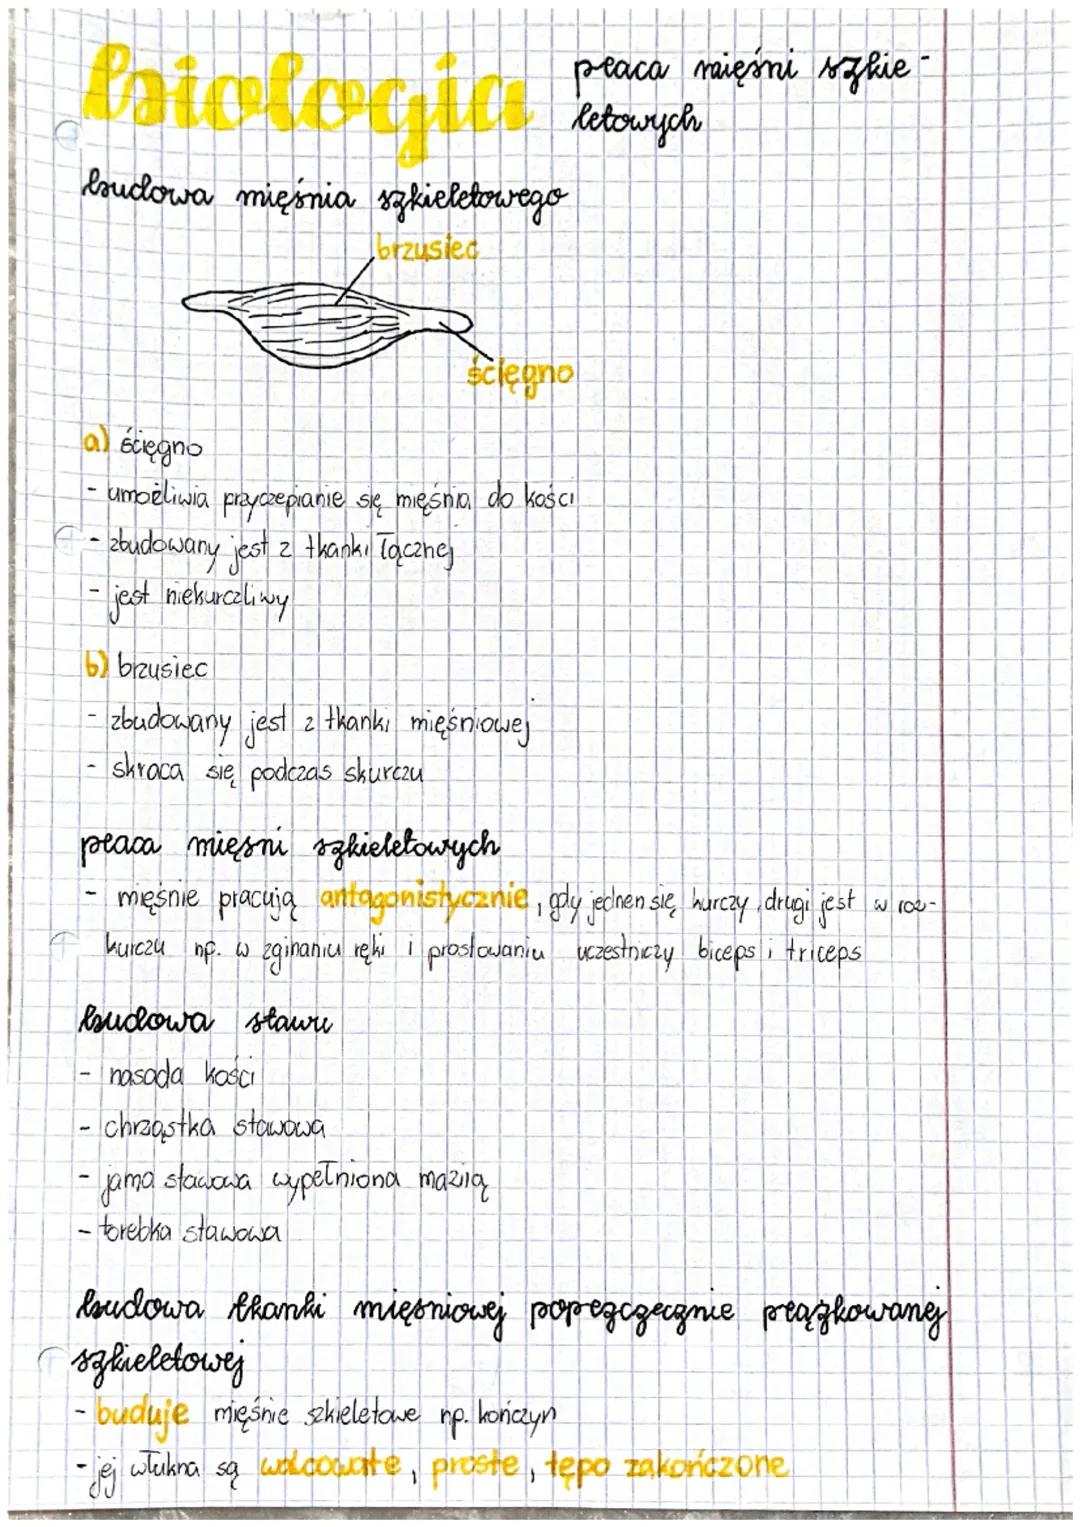 biologia
praca mięśni szkie-
letowych
budowa mięśnia szkieletowego
brzusiec
ścięgno
a) ścięgno
- umożliwia przyczepianie się mięśnia do kości
- zbudowany jest z tkanki łącznej
- jest niekurczliwy
b) brzusiec
- zbudowany jest z tkanki mięśniowej
- skraca się podczas skurczu
praca mięśni szkieletowych
- mięśnie pracują antagonistycznie, gdy jednen się kurczy, drugi jest w roz-
kurczu np. w zginaniu ręki i prostowaniu uczestniczy biceps i triceps
budowa stawu
- nasada kości
- chrząstka stawowa
- jama stawowa wypełniona mazią
- torebka stawowa
budowa tkanki mięśniowej poprzęczecznie prążkowanej
szkieletowej
- buduje mięśnie szkieletowe np. kończyn
- jej włukna są walcowate, proste, tępo zakończone